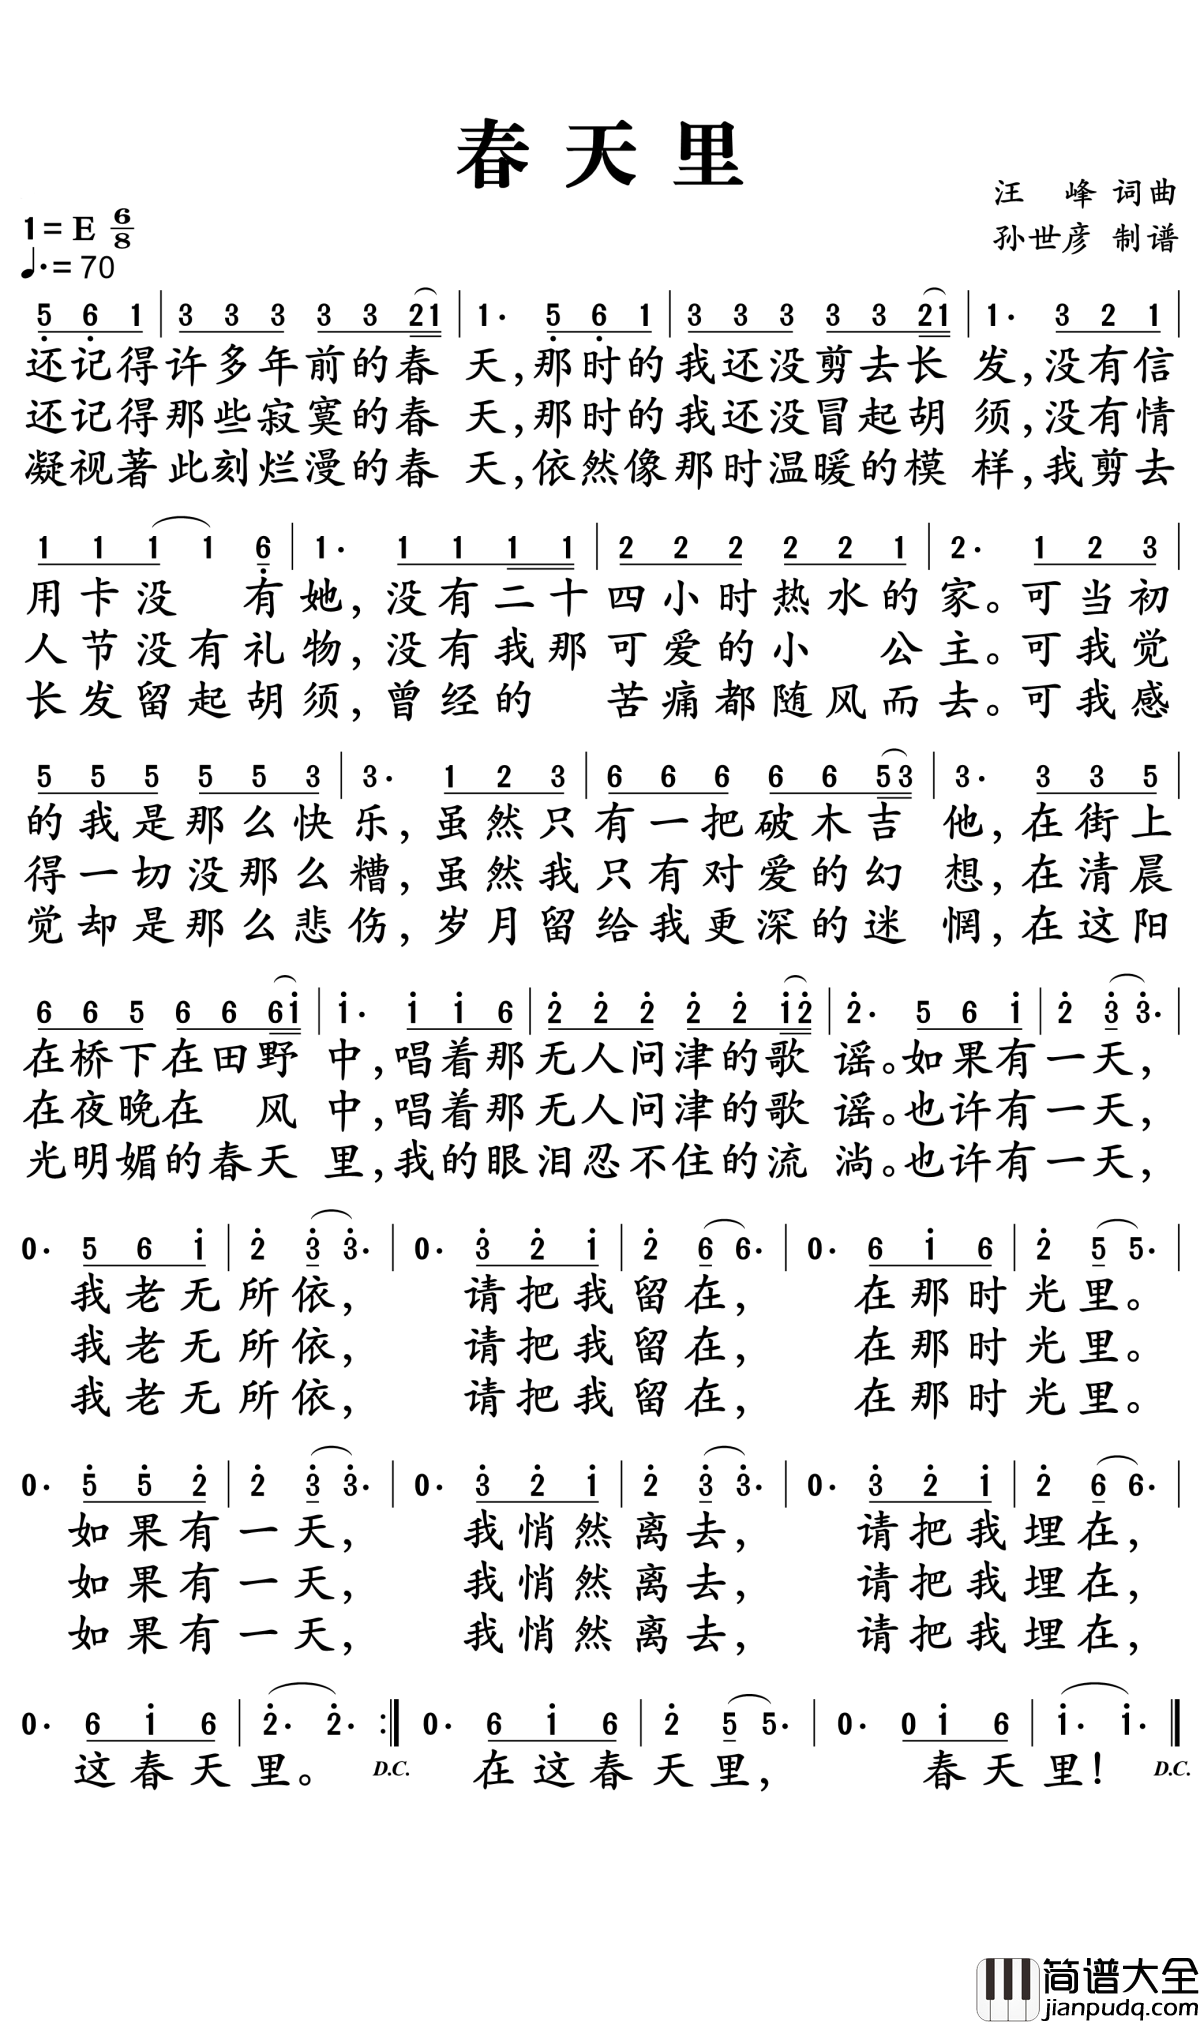 春天里
汪 峰 词曲
1= E 6/8
孙世彦 制谱
♩.= 70
5 6 1 | 3 3 3 3 3 21 | 1. 5 6 1 | 3 3 3 3 3 21 | 1. 3 2 1 |
还记得许多年前的春 天,那时的我还没剪去长 发,没有信
还记得那些寂寞的春 天,那时的我还没冒起胡 须,没有情
凝视著此刻烂漫的春 天,依然像那时温暖的模 样,我剪去
1 1 1 1 6 | 1. 1 1 1 1 | 2 2 2 2 2 1 | 2. 1 2 3 |
用卡没 有她,没有二十四小时热水的家。可当初
人节没有礼物,没有我那可爱的小 公主。可我觉
长发留起胡须,曾经的 苦痛都随风而去。可我感
5 5 5 5 5 3 | 3. 1 2 3 | 6 6 6 6 6 53 | 3. 3 3 5 |
的我是那么快乐,虽然只有一把破木吉 他,在街上
得一切没那么糟,虽然我只有对爱的幻 想,在清晨
觉却是那么悲伤,岁月留给我更深的迷 惘,在这阳
6 6 5 6 6 6i | i. i i 6 | 2 2 2 2 2 i2 | 2. 5 6 i | 2 3 3. |
在桥下在田野 中,唱着那无人问津的歌 谣。如果有一天,
在夜晚在 风 中,唱着那无人问津的歌 谣。也许有一天,
光明媚的春天 里,我的眼泪忍不住的流 淌。也许有一天,
0. 5 6 i | 2 3 3. | 0. 3 2 i | 2 6 6. | 0. 6 i 6 | 2 5 5. |
我老无所依, 请把我留在, 在那时光里。
我老无所依, 请把我留在, 在那时光里。
我老无所依, 请把我留在, 在那时光里。
0. 5 5 2 | 2 3 3. | 0. 3 2 i | 2 3 3. | 0. 3 2 i | 2 6 6. |
如果有一天, 我悄然离去, 请把我埋在,
如果有一天, 我悄然离去, 请把我埋在,
如果有一天, 我悄然离去, 请把我埋在,
0. 6 i 6 | 2. 2. :| 0. 6 i 6 | 2 5 5. | 0. 0 i 6 | i. i. ‖
这春天里。 D.C. 在这春天里, 春天里! D.C.
简谱大全
jianpudq.com